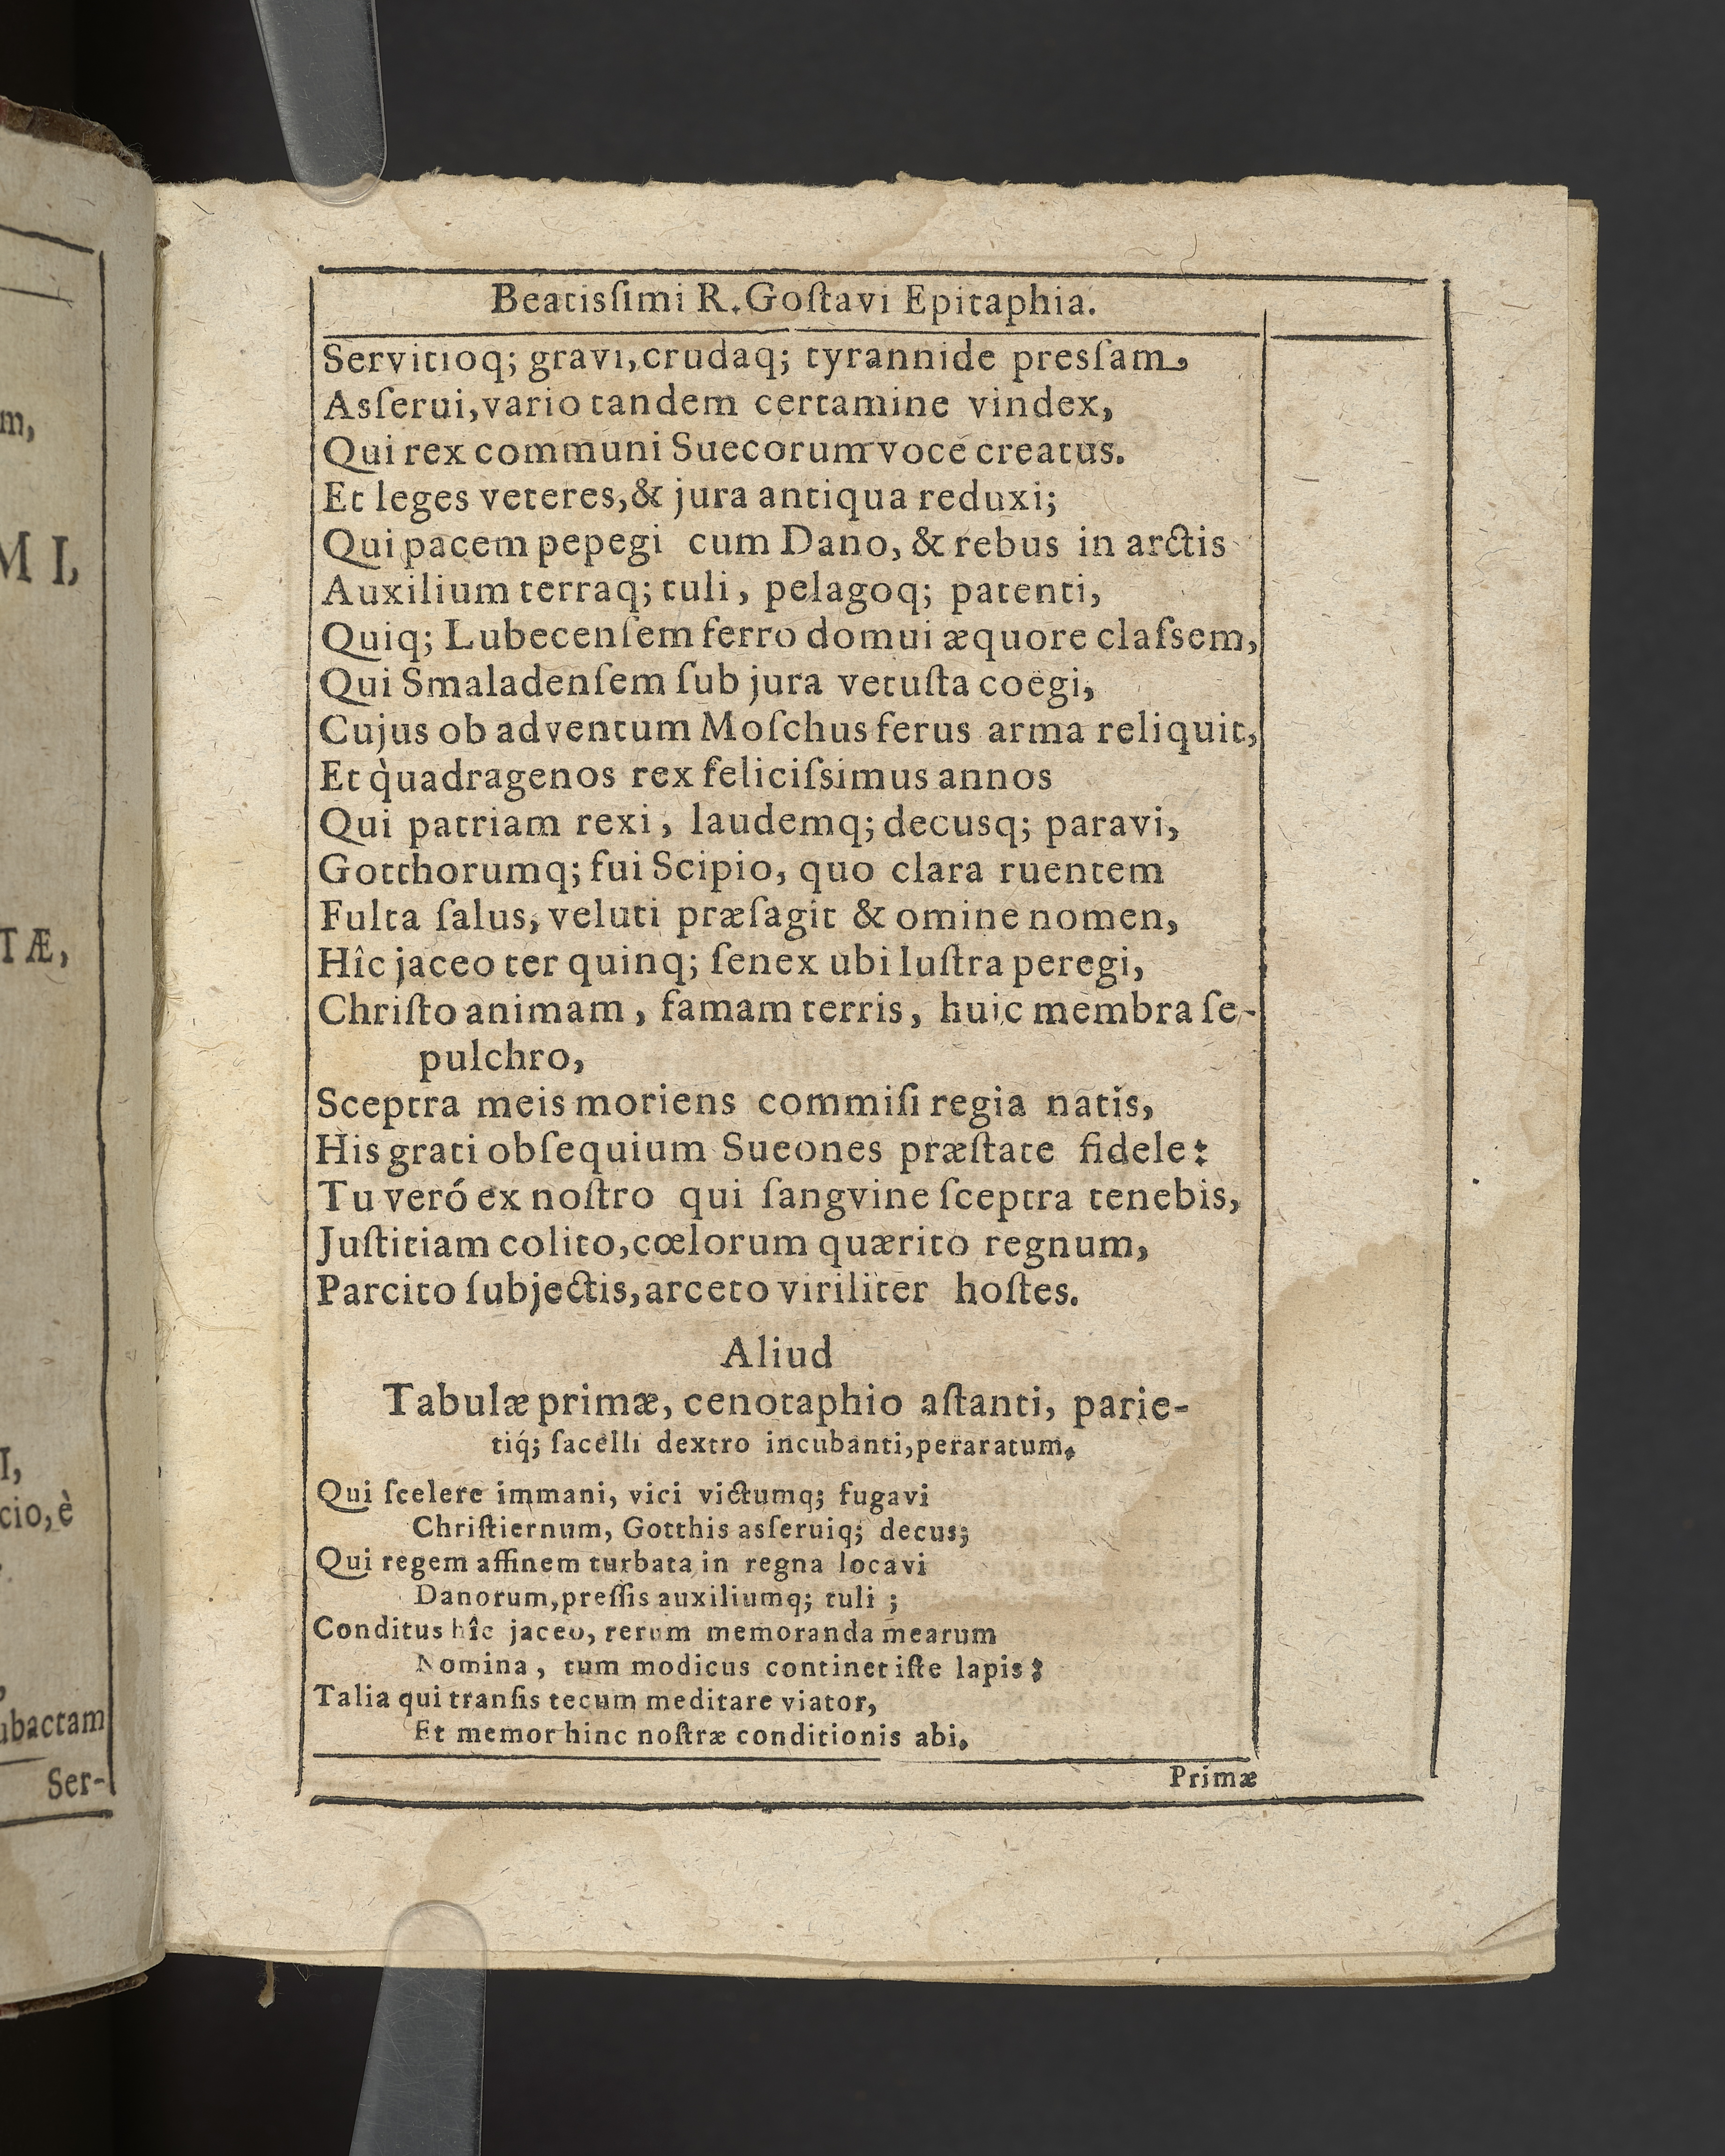 m,
M I,
TÆ,
I,
cio, è
ubactam
Ser-
Beatisſimi R. Goſtavi Epitaphia.
Servitioq; gravi, crudaq; tyrannide presſam,
Asſerui, vario tandem certamine vindex,
Qui rex communi Suecorum voce creatus.
Et leges veteres, & jura antiqua reduxi;
Qui pacem pepegi cum Dano, & rebus in arctis
Auxilium terraq; tuli, pelagoq; patenti,
Quiq; Lubecenſem ferro domui æquore claſsem,
Qui Smaladenſem ſub jura vetuſta coëgi,
Cujus ob adventum Moſchus ferus arma reliquit,
Et quadragenos rex feliciſsimus annos
Qui patriam rexi, laudemq; decusq; paravi,
Gotthorumq; fui Scipio, quo clara ruentem
Fulta ſalus, veluti præſagit & omine nomen,
Hîc jaceo ter quinq; ſenex ubi luſtra peregi,
Chriſto animam, famam terris, huic membra ſe-
pulchro,
Sceptra meis moriens commiſi regia natis,
His grati obſequium Sueones præſtate fidele:
Tu veró ex noſtro qui ſangvine ſceptra tenebis,
Juſtitiam colito, cœlorum quærito regnum,
Parcito ſubjectis, arceto viriliter hoſtes.
Aliud
Tabulæ primæ, cenotaphio aſtanti, parie-
tiq́; ſacelli dextro incubanti, peraratum.
Qui ſcelere immani, vici victumq; fugavi
Chriſtiernum, Gotthis asſeruiq; decus;
Qui regem affinem turbata in regna locavi
Danorum, preſſis auxiliumq; tuli ;
Conditus hîc jaceo, rerum memoranda mearum
Nomina, tum modicus continet iſte lapis:
Talia qui tranſis tecum meditare viator,
Et memor hinc noſtræ conditionis abi.
Primæ